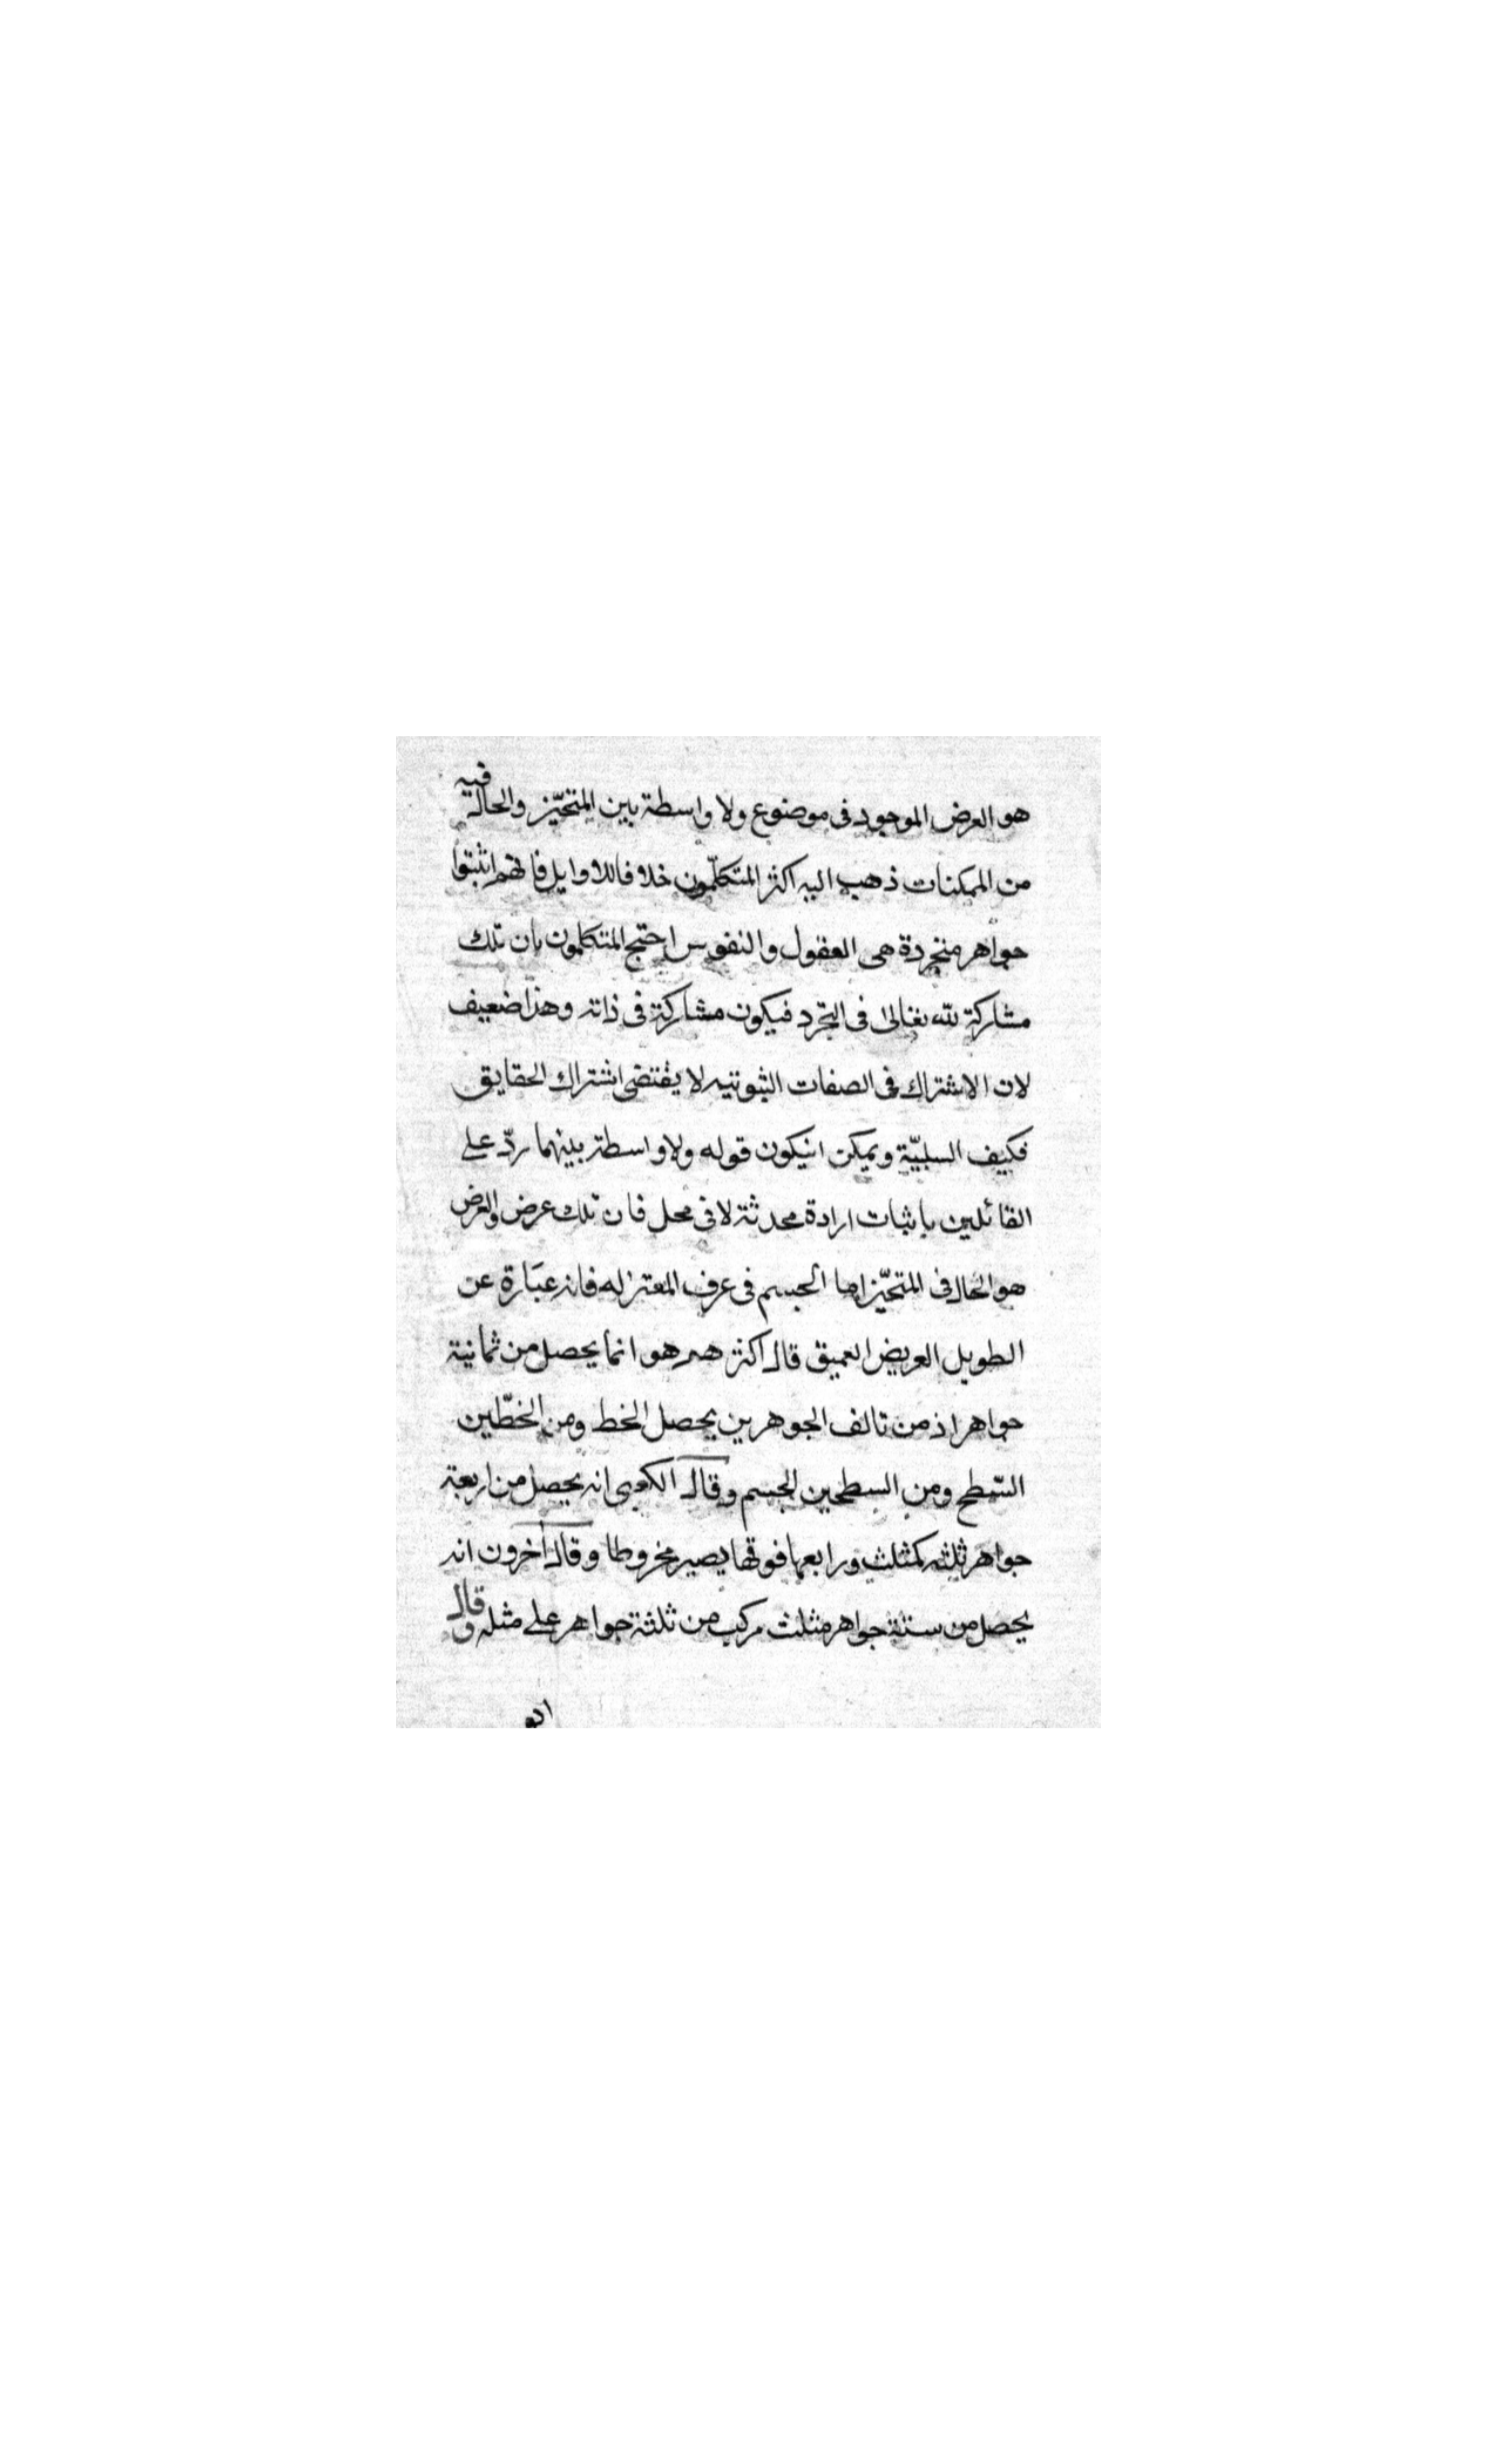 هو العرض الموجود فى موضوع ولا واسطة بين المتحيّز والحال فيه
من الممكنات ذهب اليه اكثر المتكلّمون خلافا للاوايل فانهم اثبتوا
جواهر متجردة هى العقول والنفوس احتج المتكلمون بان تلك
مشاركة لله تعالى فى التجرد فيكون مشاركة فى ذاته وهذا ضعيف
لان الاشتراك فى الصفات الثبوتيه لا يقتضى اشتراك الحقايق
فكيف السلبيّة ويمكن انيكون قوله ولا واسطة بينهما ردّ على
القائلين باثبات ارادة محدثة لا فى محل فان تلك عرض والعرض
هو الحال فى المتحيّز اما الجسم فى عرف المعتزله فانه عبارة عن
الطويل العريض العميق قال اكثرهم هو انما يحصل من ثمانية
جواهر اذ من تالف الجوهرين يحصل الخط ومن الخطّين
السّطح ومن السطحين الجسم وقال الكعبى انه يحصل من اربعة
جواهر ثلثه كمثلث ورابعها فوقها يصير مخروطا وقال آخرون انه
يحصل من ستة جواهر مثلث مركب من ثلثة جواهر على مثله وقال
ابو